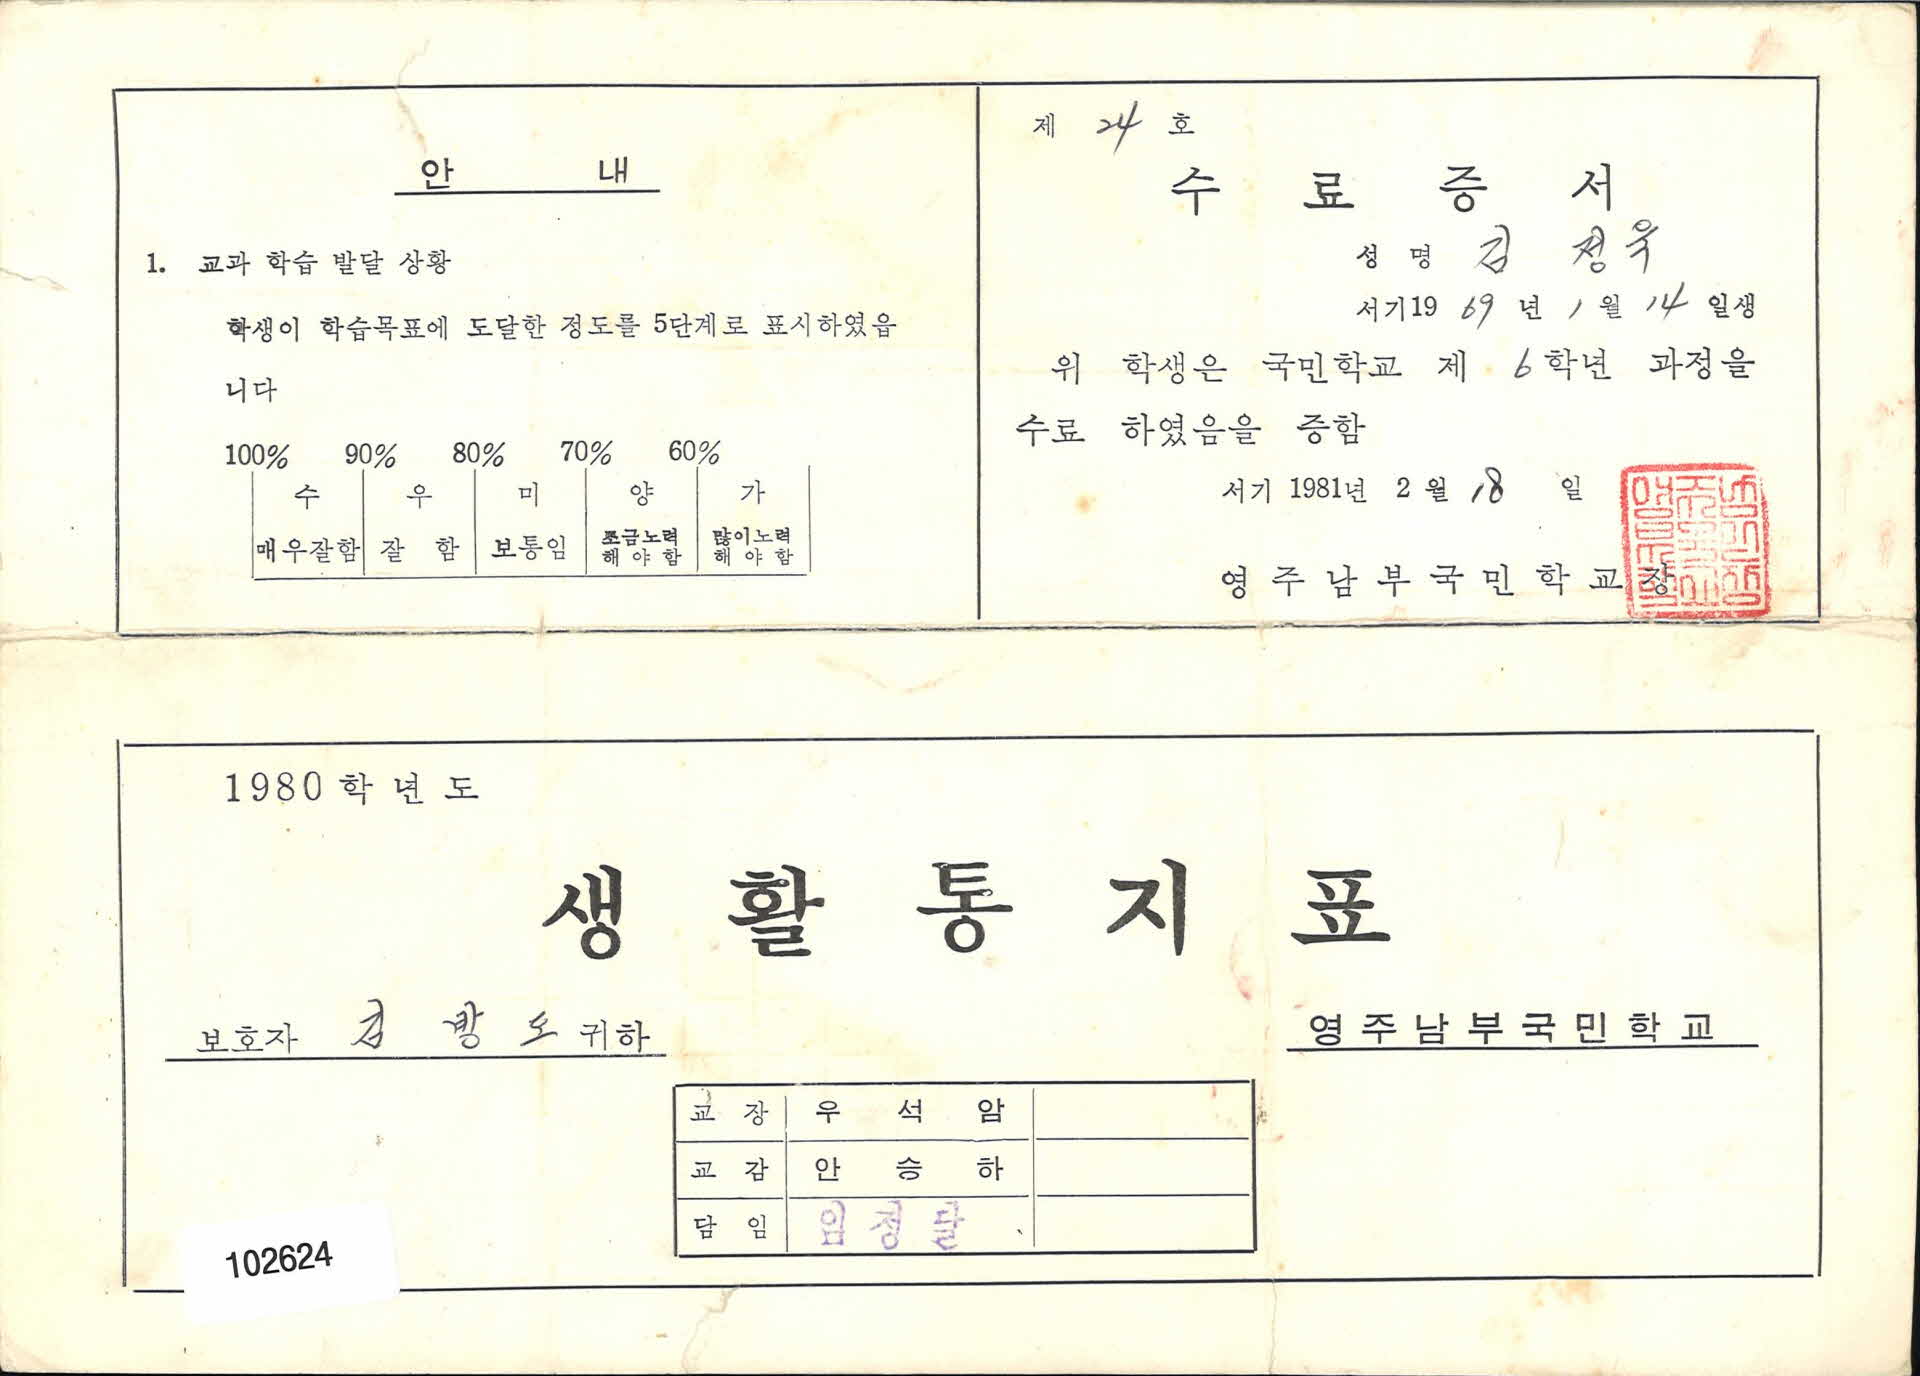 안 내
1. 교과 학습 발달 상황
학생이 학습목표에 도달한 정도를 5단계로 표시하였읍
니다
100% 90% 80% 70% 60%
수 우 미 양 가
매우잘함 잘 함 보통임 조금노력 해야함 많이노력 해야함
제 24 호
수 료 증 서
성 명 김 정욱
서기19 69 년 1 월 14 일생
위 학생은 국민학교 제 6학년 과정을
수료 하였음을 증함
서기 1981년 2 월 18 일
영주남부국민학교장
1980학년도
생 활 통 지 표
보호자 김 방 도 귀하
영주남부국민학교
교 장 우 석 암
교 감 안 승 하
담 임 임 정
102624